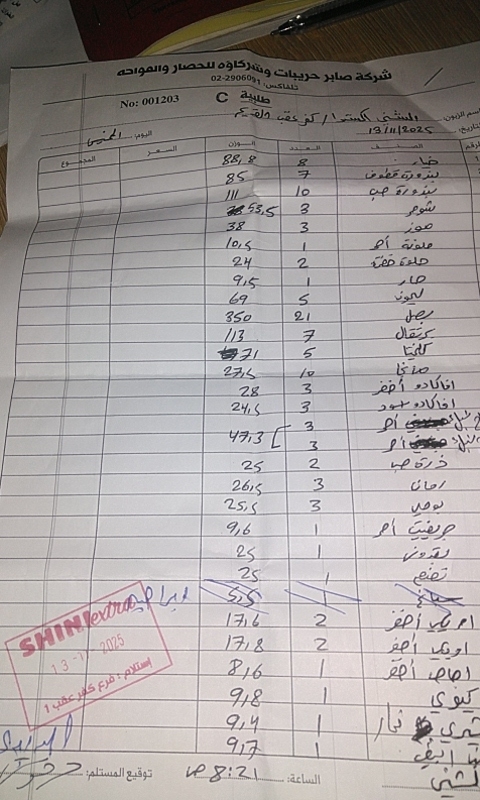 شركة صابر حريبات وشركاؤه للخضار والفواكه
تلفاكس: 02-2906091
No: 001203 طلبية C
اسم الزبون الشني اكسترا / كفر عقب
التاريخ: 13/11/2025 اليوم: الخميس
الصنف العدد الوزن السعر المجموع
خيار 8 88,8
بندورة قطوف 7 85
بندورة حب 10 111
شومر 3 53,5
موز 3 38
ملونة أحمر 1 10,5
حلوة خضرة 2 24
حار 1 9,5
ليمون 5 69
بصل 21 350
برتقال 7 113
كلمنتينا 5 71
10 27,5
افاكادو أخضر 3 28
افاكادو أسود 3 24,5
3 47,3
3
ذرة حب 2 25
رمان 3 26,5
بوملي 3 25,5
جريفوت أحمر 1 9,6
بقدونس 1 25
نعنع 1 25
1 5,5
2 17,6
2 17,8
اجاص أخضر 1 8,6
كيوي 1 9,8
شيري 1 9,4
1 9,7
SHINI extra
13-11-2025
إستلام: فرع كفر عقب 1
الساعة: 8:21 ص توقيع المستلم: